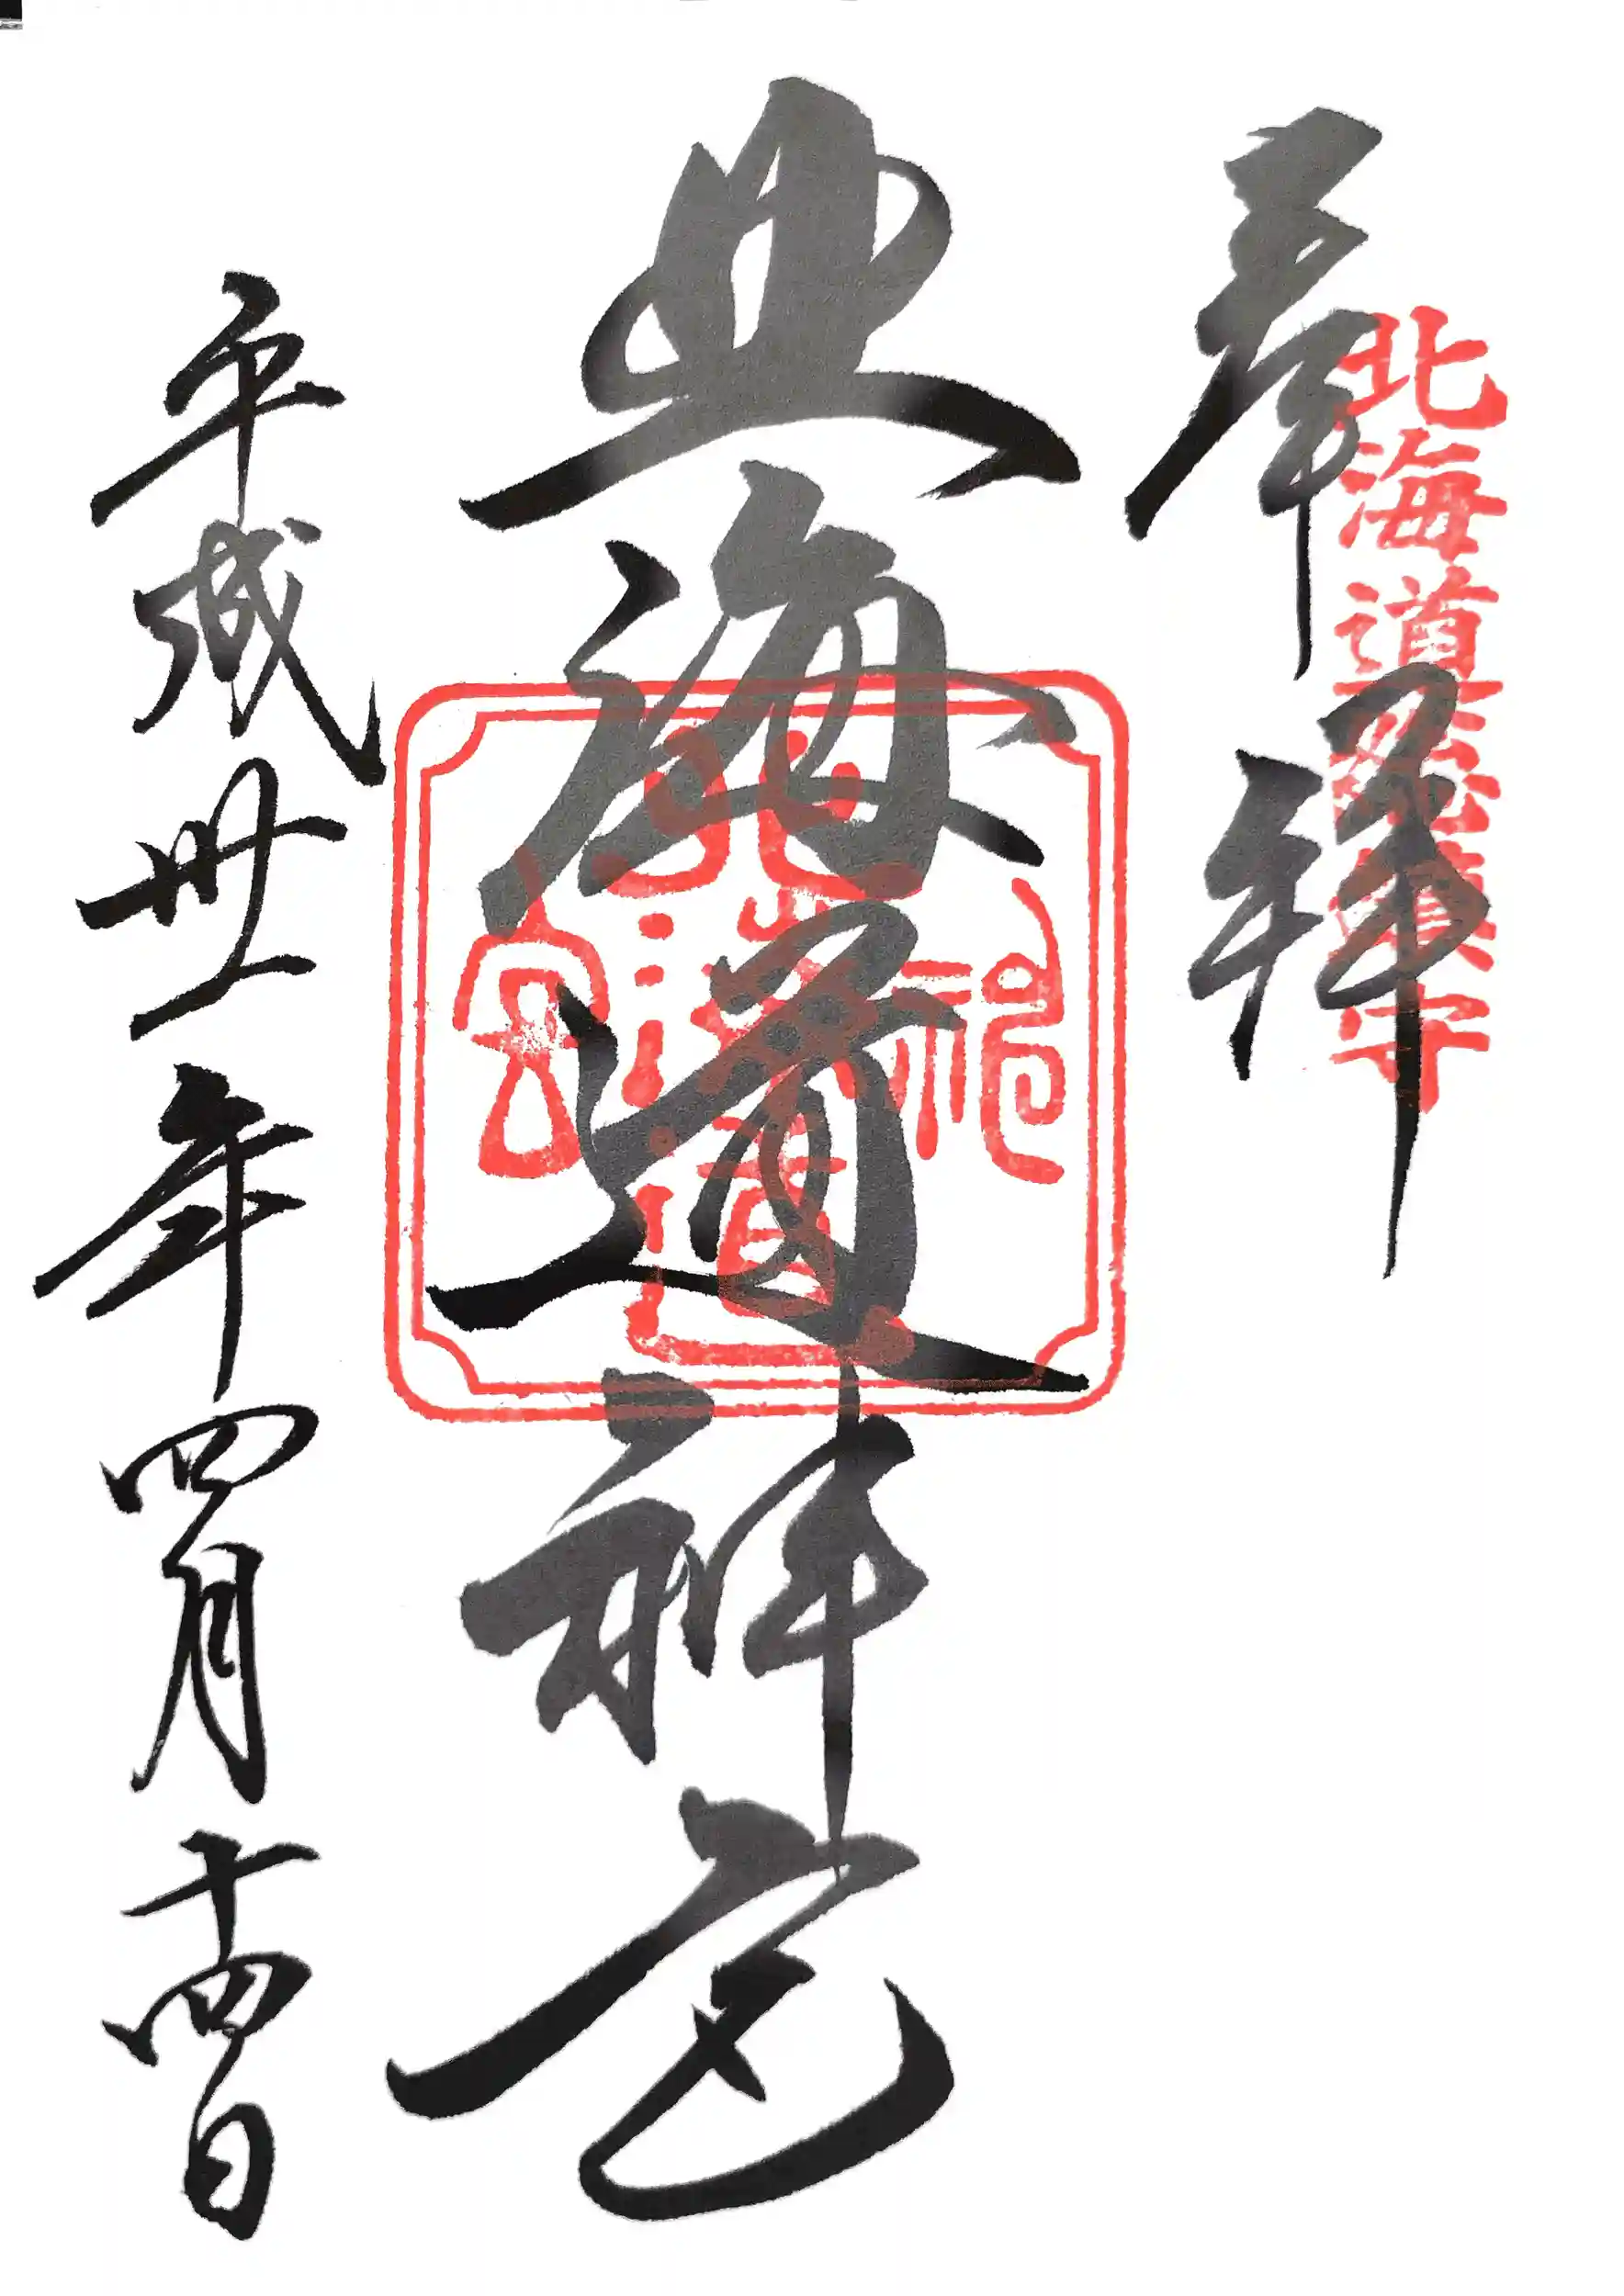 北海道総鎮守
奉拝
北海道神宮
北海道神宮
平成卅一年四月十四日